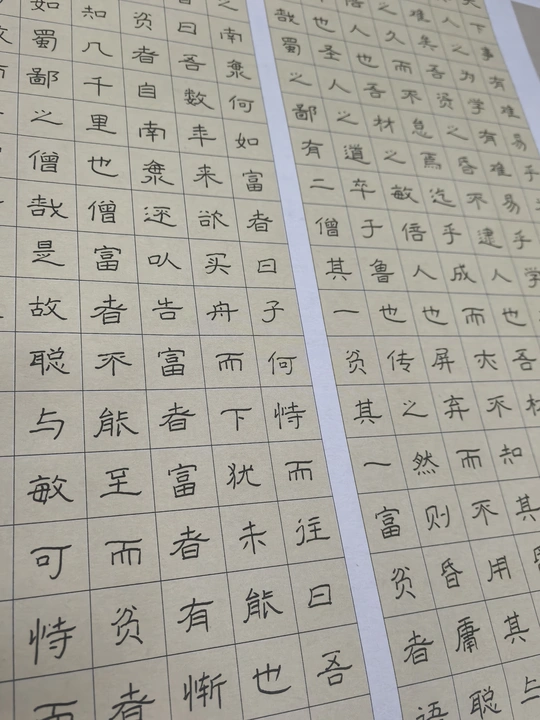 天下事有难易乎
人之为学有难易乎学
难矣吾资之昏不逮人也吾材
之久而不怠焉迄乎成而亦不知其
人也吾材之敏倍人也屏弃而不用其与
也圣人之道卒于鲁也传之然则昏庸聪
哉蜀之鄙有二僧其一贫其一富贫者语
之南海何如富者曰子何恃而往曰吾
曰吾数年来欲买舟而下犹未能也
贫者自南海还以告富者富者有惭
知几千里也僧富者不能至而贫者
如蜀鄙之僧哉是故聪与敏可恃而